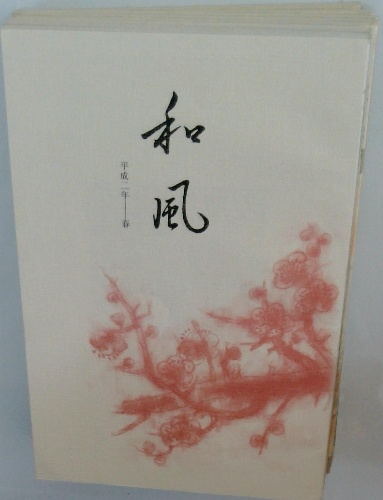 和風
平成二年──春